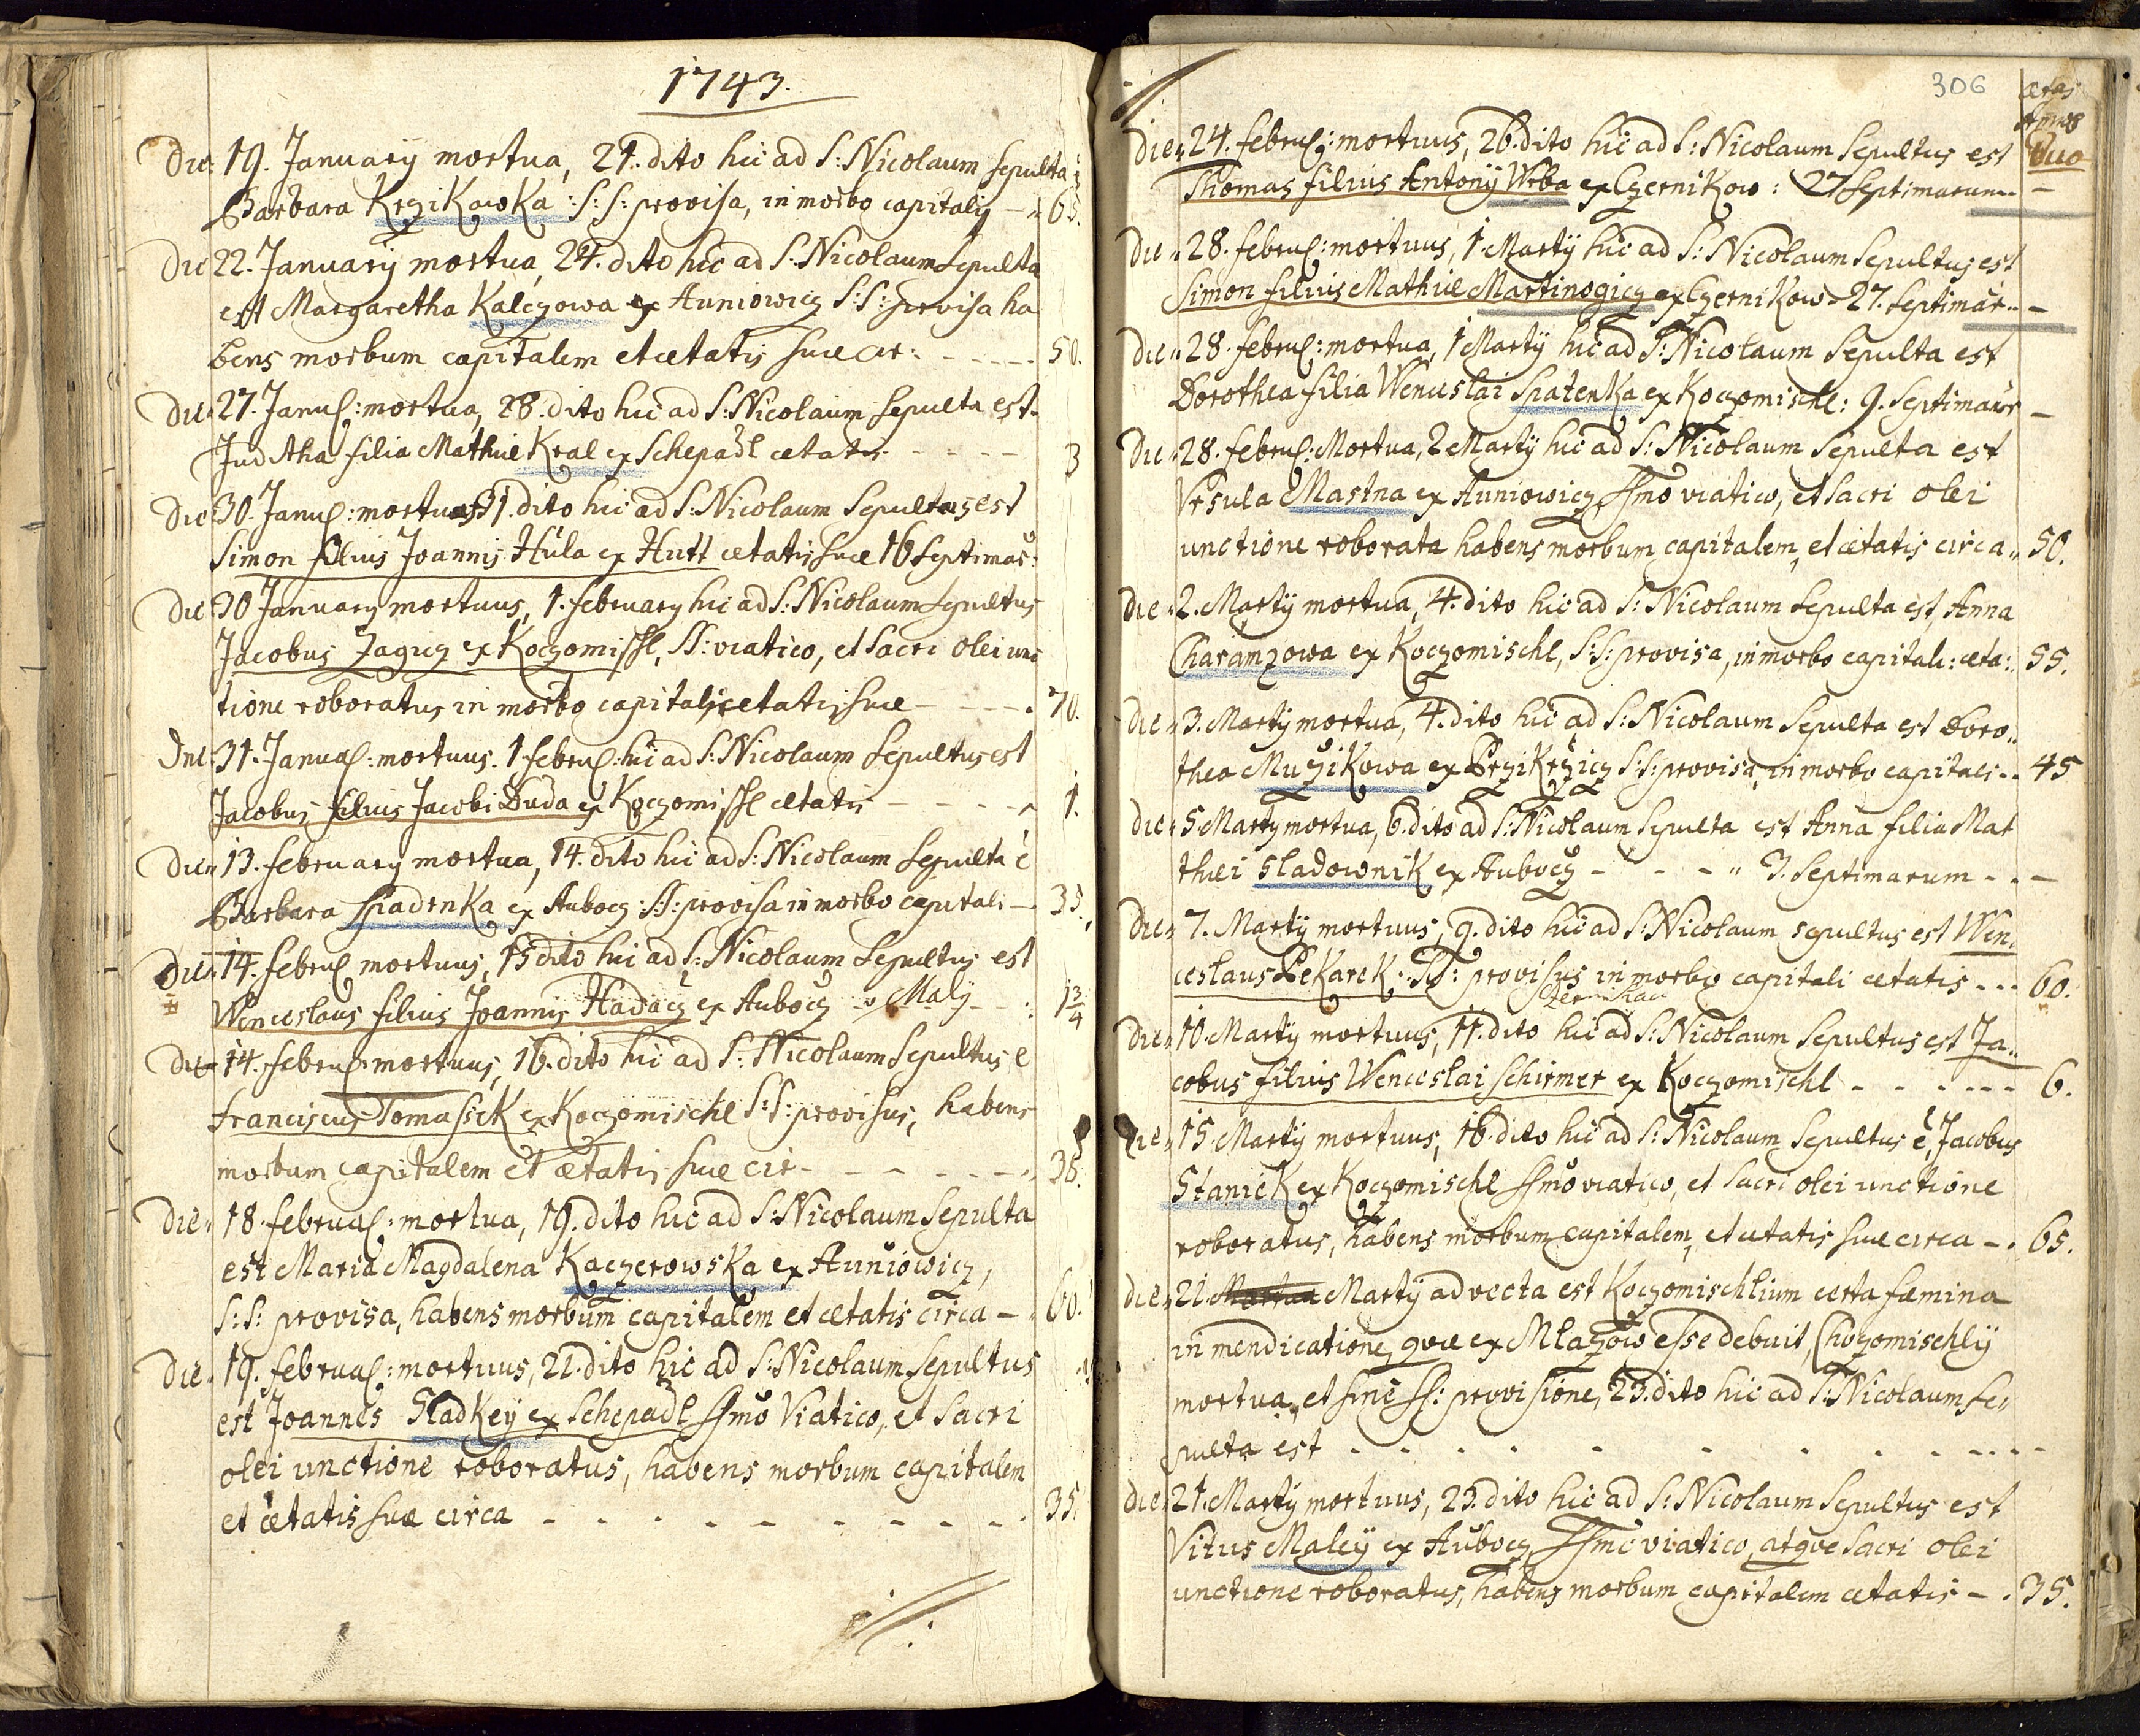 1743.
Die 19. Januarÿ mortua, 21. dito hic ad S: Nicolaum sepulta ē
Barbara Krzikawka S: S: provisa, in morbo capitali - 65.
Die 22. Januarÿ mortua, 24. dito hic ad S: Nicolaum Sepulta
est Margaretha Kalczowa ex Auniowicz S: S: provisa ha
bens morbum capitalem et ætatis suæ cir: - - - - - 50.
Die 27. Janu: mortua, 28. dito hic ad S: Nicolaum sepulta est
Juditha filia Mathiæ Kral ex Schepadl ætatis - - - - - 3
Die 30. Janu: mortuus 31. dito hic ad S: Nicolaum Sepultus est
Simon filius Joannis Hůla ex Hutt ætatis suæ 16 Septimar:
Die 30 Januarÿ mortuus, 1. februarÿ hic ad S: Nicolaum Sepultus
Jacobus Zagicz ex Koczomissl, SS: viatico, et Sacri olei unc
tione roboratus in morbo capitali ætatis suæ - - - - - 70.
Die 31. Janua: mortuus. 1 febru: hic ad S: Nicolaum Sepultus est
Jacobus filius Jacobi Duda ex Koczomissl ætatis - - - - - 1.
Die 13. februarÿ mortua, 14. dito hic ad S: Nicolaum Sepulta ē
Barbara Spadrnka ex Aubocz: S:S: provisa in morbo capitali - 35.
Die 14. febru mortuus, 15 dito hic ad S: Nicolaum Sepultus est
Wenceslaus filius Joannis Hadacz ex Aubocz v Malÿ - - : 1 3/4
Die 14. febru: mortuus, 16. dito hic ad S: Nicolaum Sepultus ē
Franciscus Tomassek ex Koczomischl S: S: provisus, habens
morbum capitalem et ætatis suæ cir - - - - - - 36.
Die 18. februa: mortua, 19. dito hic ad S: Nicolaum Sepulta
est Maria Magdalena Kaczerowska ex Auniowicz,
S: S: provisa, habens morbum capitalem et ætatis circa - 60.
Die 19. februa: mortuus, 21. dito hic ad S: Nicolaum Sepultus
est Joannes Sladkeÿ ex Schepadl SSmo Viatico, et Sacri
olei unctione roboratus, habens morbum capitalem
et ætatis suæ circa - - - - - - - - - - 35.
306
ætas
Duo
Die 24. febru: mortuus, 26. dito hic ad S: Nicolaum Sepultus est
Thomas filius Antonÿ Wrba ex Czernikow: 27 Septimarum - -
Die 28. febru: mortuus, 1. Martÿ hic ad S: Nicolaum Sepultus est
Simon filius Mathiæ Martinogicz ex Czernikow - 27. Septimar - -
Die 28. febru: mortua, 1 Martÿ hic ad S: Nicolaum Sepulta est
Dorothea filia Wenceslai Spatenka ex Koczomischl: 9. Septimarū -
Die 28. febru: Mortua, 2 Martÿ hic ad S: Nicolaum Sepulta est
Vrsula Mastna ex Auniowicz SSmo viatico, et Sacri olei
unctione roborata habens morbum capitalem, et ætatis circa 50.
Die 2. Martÿ mortua, 4. dito hic ad S: Nicolaum Sepulta est, Anna
Charamzowa ex Koczomischl, S: S: provisa, in morbo capitali: æta: 55.
Die 3. Martÿ mortua, 4. dito hic ad S: Nicolaum Sepulta est Doro„
thea Muzikowa ex Przikrzicz S: S: provisa, in morbo capitali - - 45
Die 5 Martÿ mortua, 6. dito ad S: Nicolaum Sepulta est Anna filia Mat
thæi Sladownik ex Aubocz - - - 3. Septimarum - - -
Die 7. Martÿ mortuus, 9. dito hic ad S: Nicolaum sepultus est Wen„
ceslaus Pekarek: SS: provisus in morbo capitali ætatis - - - 60.
Die 10 Martÿ mortuus, 11. dito hic ad S: Nicolaum Sepultus est Ja„
cobus filius Wenceslai Schirmer ex Koczomischl - - - - - - 6.
Die 15. Martÿ mortuus, 16. dito hic ad S: Nicolaum Sepultus ē, Jacobus
Stanick ex Koczomischl SSmo viatico, et Sacri olei unctione
roboratus, habens morbum capitalem, et ætatis suæ circa - 65.
Die 21. Martÿ advecta est Koczomischlium certa fæmina
in mendicatione, quæ ex Mlazow esse debuit, Chozomischlÿ
mortua, et sine SS: provisione, 23. dito hic ad S: Nicolaum Se„
pulta est - - - - - - - - - - - -
Die 21. Martÿ mortuus, 23. dito hic ad S: Nicolaum Sepultus est
Vitus Maleÿ ex Aubocz SSmo viatico, atque Sacri olei
unctione roboratus, habens morbum capitalem ætatis - . 35.